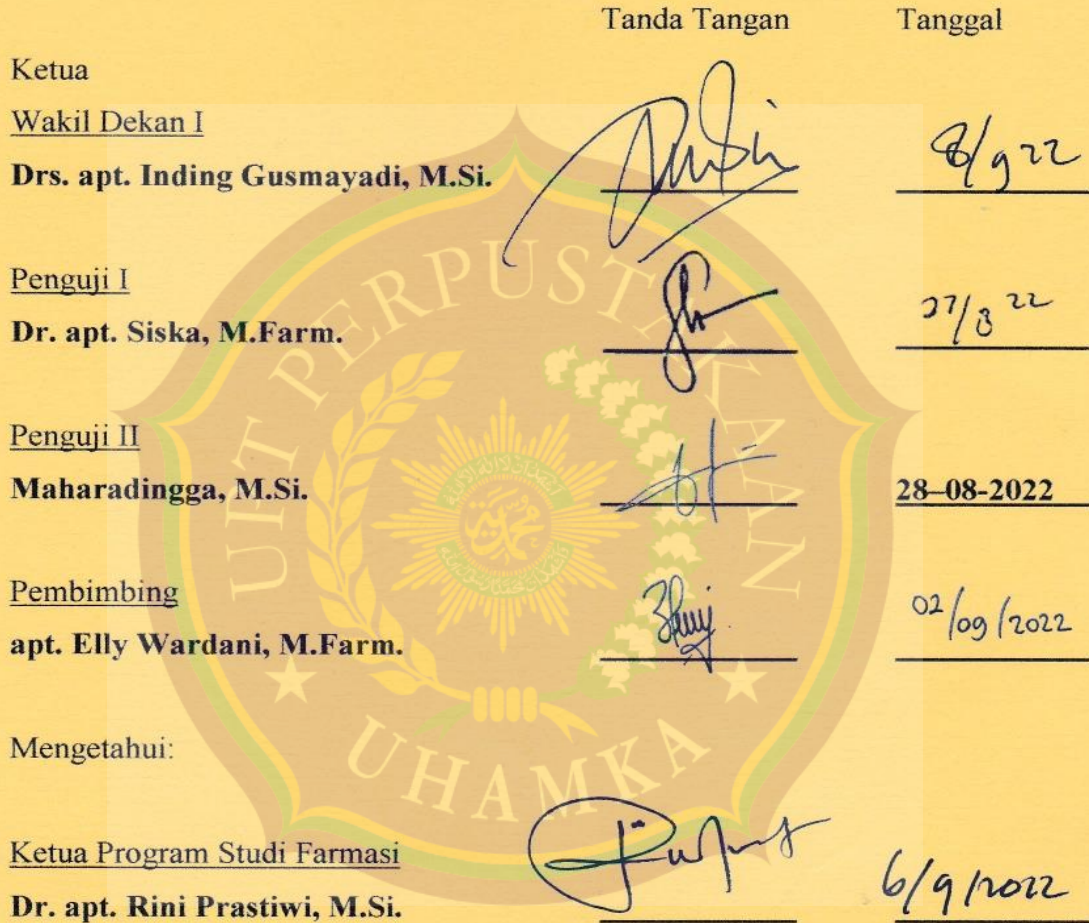 Tanda Tangan Tanggal
Ketua
Wakil Dekan I
Drs. apt. Inding Gusmayadi, M.Si. 8/9 22
Penguji I
Dr. apt. Siska, M.Farm. 27/8 22
Penguji II
Maharadingga, M.Si. 28–08-2022
Pembimbing
apt. Elly Wardani, M.Farm. 02/09/2022
Mengetahui:
Ketua Program Studi Farmasi
Dr. apt. Rini Prastiwi, M.Si. 6/9/2022
UIT PERPUSTAKAAN
UHAMKA